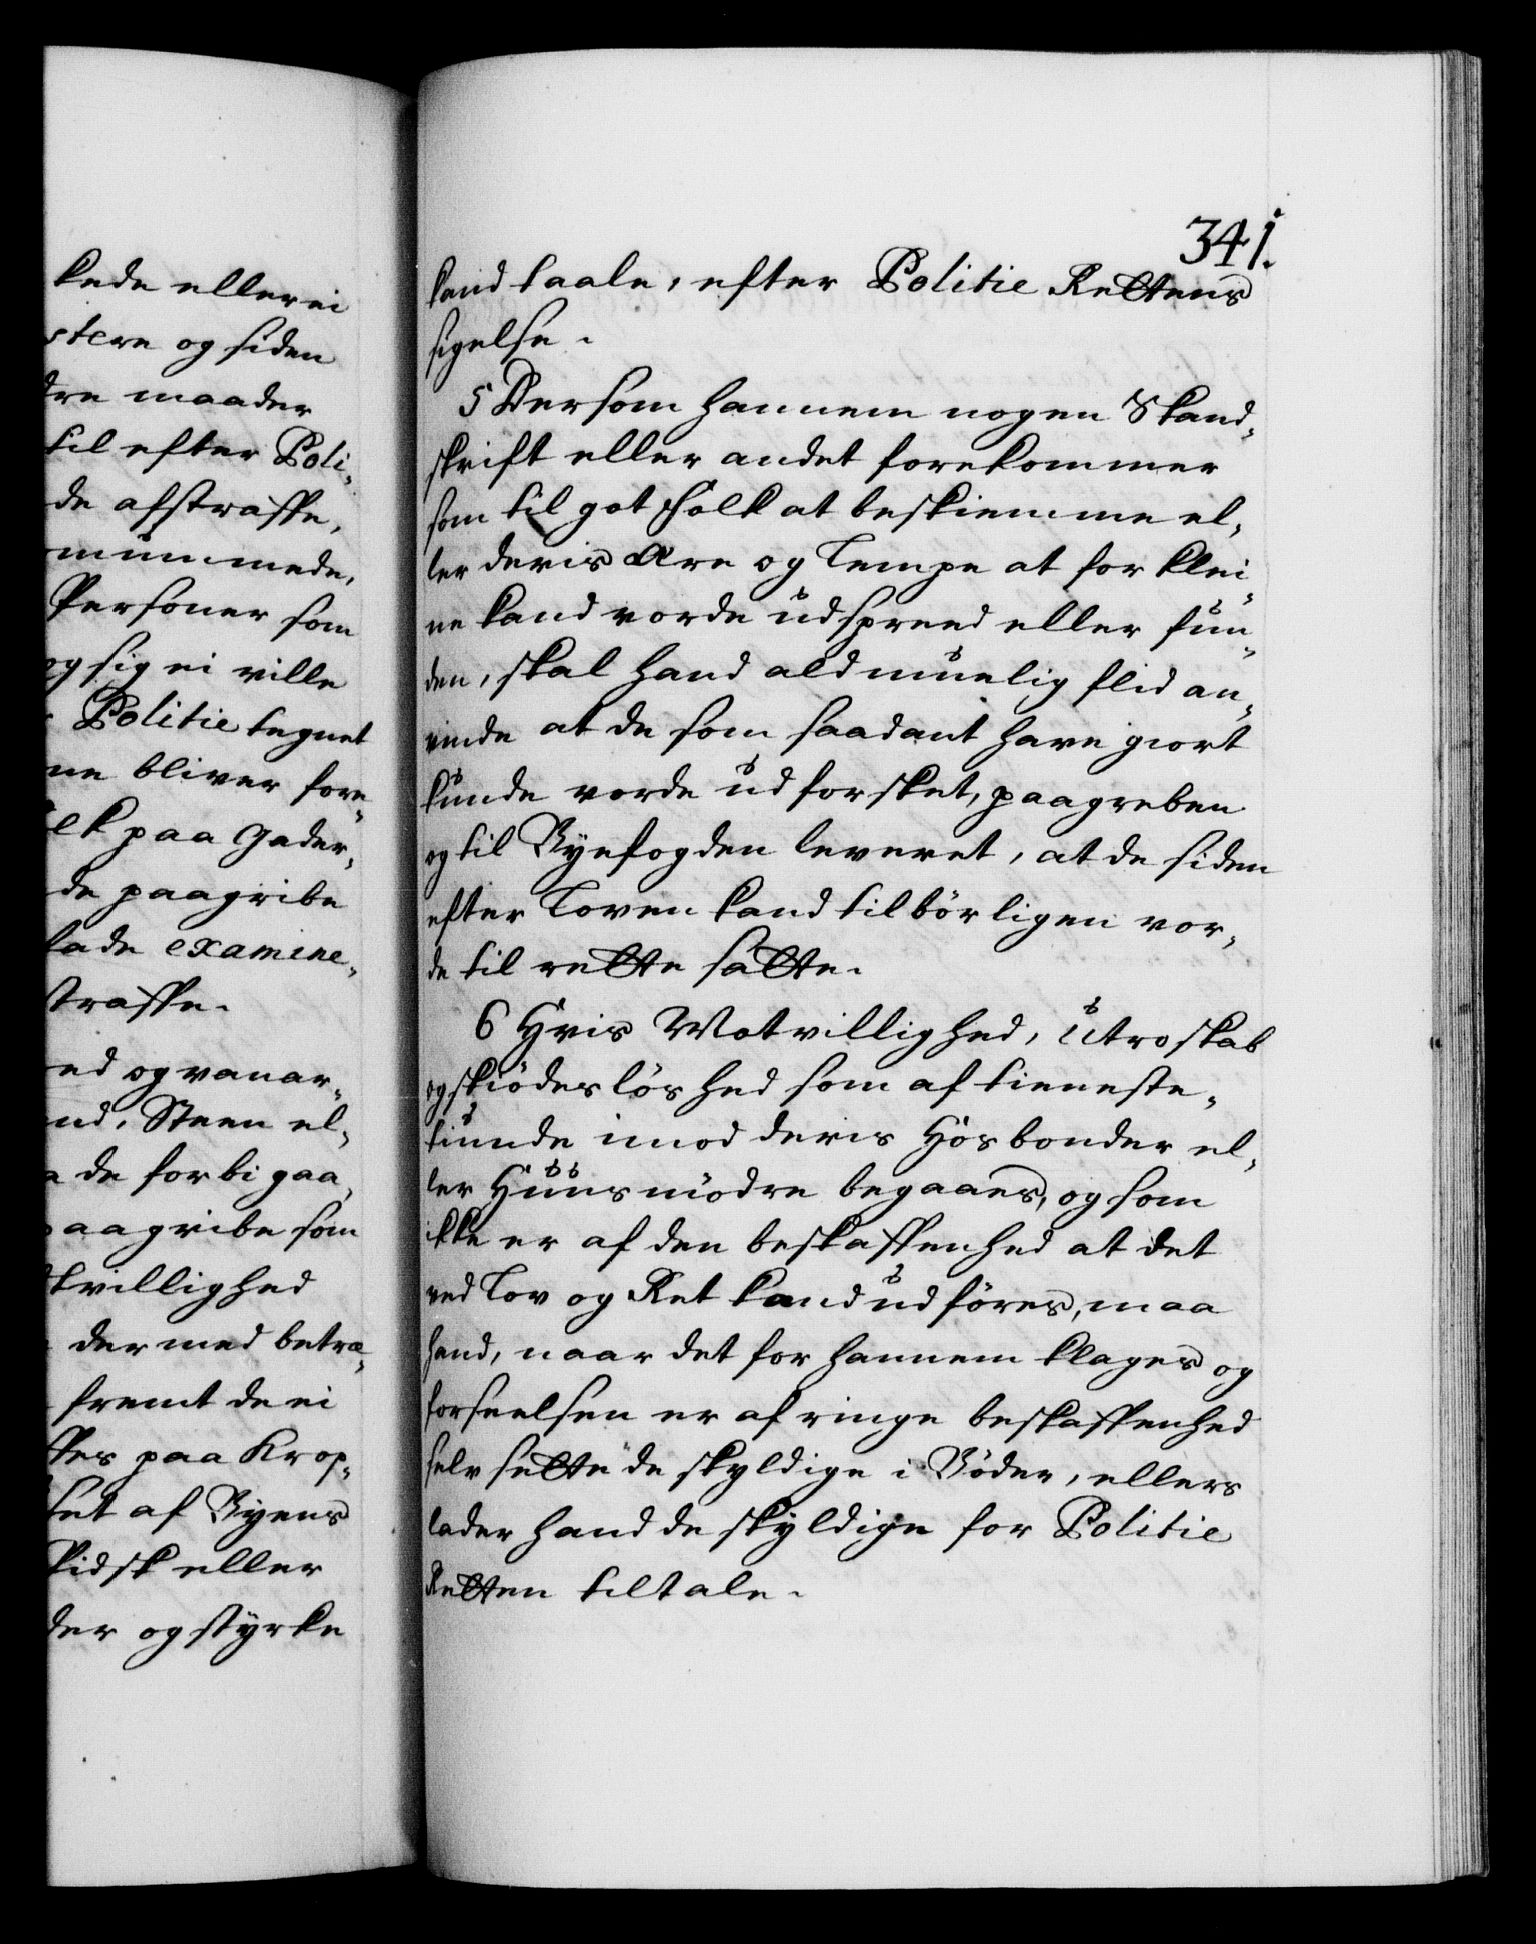 kede eller ei
stere og siden
dre maader
til efter Poli-
de afstraffe,
mummede,
Personer som
og sig ei ville
Politie tegnet
ne bliver fore-
elk paa Gader,
de paagribe
lade examine-
straffe.
ed og vanar-
nd, Steen el-
de forbi gaa,
paagribe som
tvillighed
der med betræ-
fremt de ei
ffes paa Krop-
set af Byens
Kidsk eller
der og styrke
341.
kand taale, efter Politie Rettens
sigelse.
5 Dersom hannem nogen Skand-
skrift eller andet forekommer
som til got Folk at beskiemme el-
ler deris Ære og Lempe at for klei-
ne kand vorde udspreed eller fun-
den, skal hand ald muelig flid an-
vende at de som saadant have giort
kunde vorde udforsket, paagreben
og til Byefogden leveret, at de siden
efter Loven kand tilbørligen vor-
de til rette sætte.
6 Hvis Motvillighed, Utroskab
og skiødesløshed som af tieneste-
tiunde imod deris Hosbonder el-
ler Huusmødre begaaes, og som
ikke er af den beskaffenhed at det
ved Lov og Ret kand udføres, maa
hand, naar det for hannem klages og
forseelsen er af ringe beskaffenhed
selv sette de skyldige i Bøder, ellers
lader hand de skyldige for Politie
Retten tiltale.